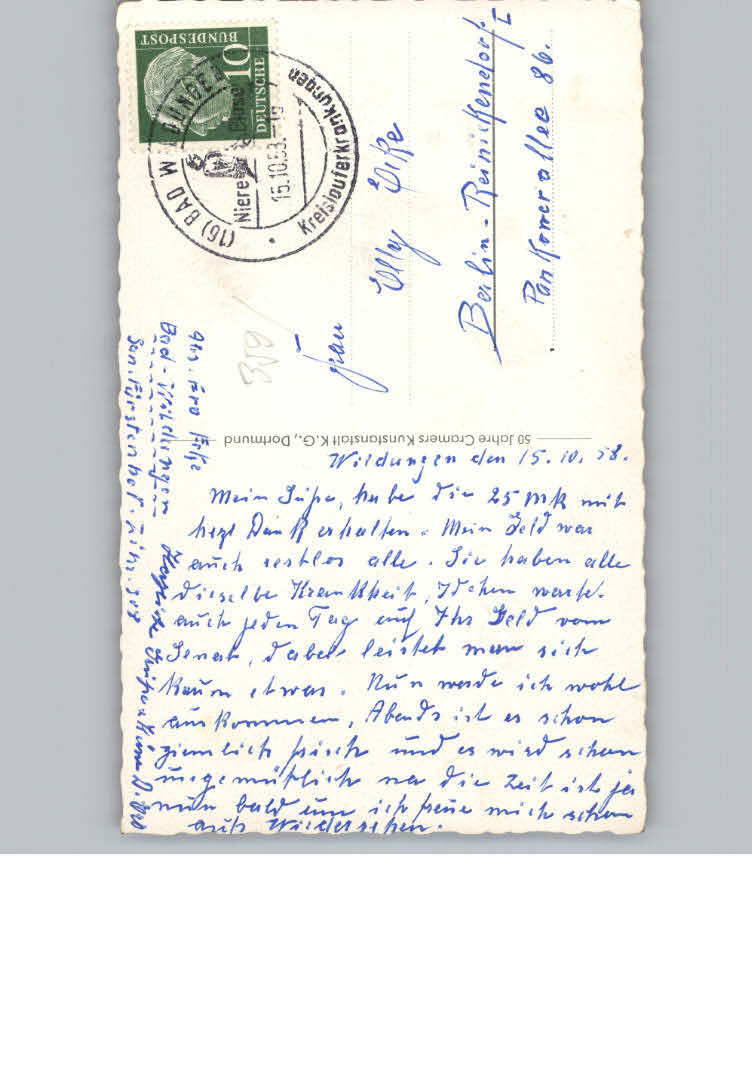 DEUTSCHE
BUNDESPOST
10
(16) BAD WILDUNGEN
15.10.58.-19
Niere
Blase
Kreislauferkrankungen
Frau
Elly Eike
Berlin-Reinickendorf
Pankower allee 86.
359
50 Jahre Cramers Kunstanstalt K.G., Dortmund
Bad-Wildungen
San. Fürstenhof.
Wildungen den 15. 10. 58.
Mein Süße, habe die 25 Mk mit
herzl Dank erhalten. Mein Geld war
auch restlos alle. Sie haben alle
dieselbe Krankheit,
auch jeden Tag auf Ihr Geld vom
Senat, dabei leistet man sich
kaum etwas. Nun werde ich wohl
auskommen, Abends ist es schon
ziemlich frisch und es wird schon
ungemütlich na die Zeit ist ja
nun bald um ich freue mich schon
aufs Wiedersehen.
Herzliche Grüße u Küsse D.